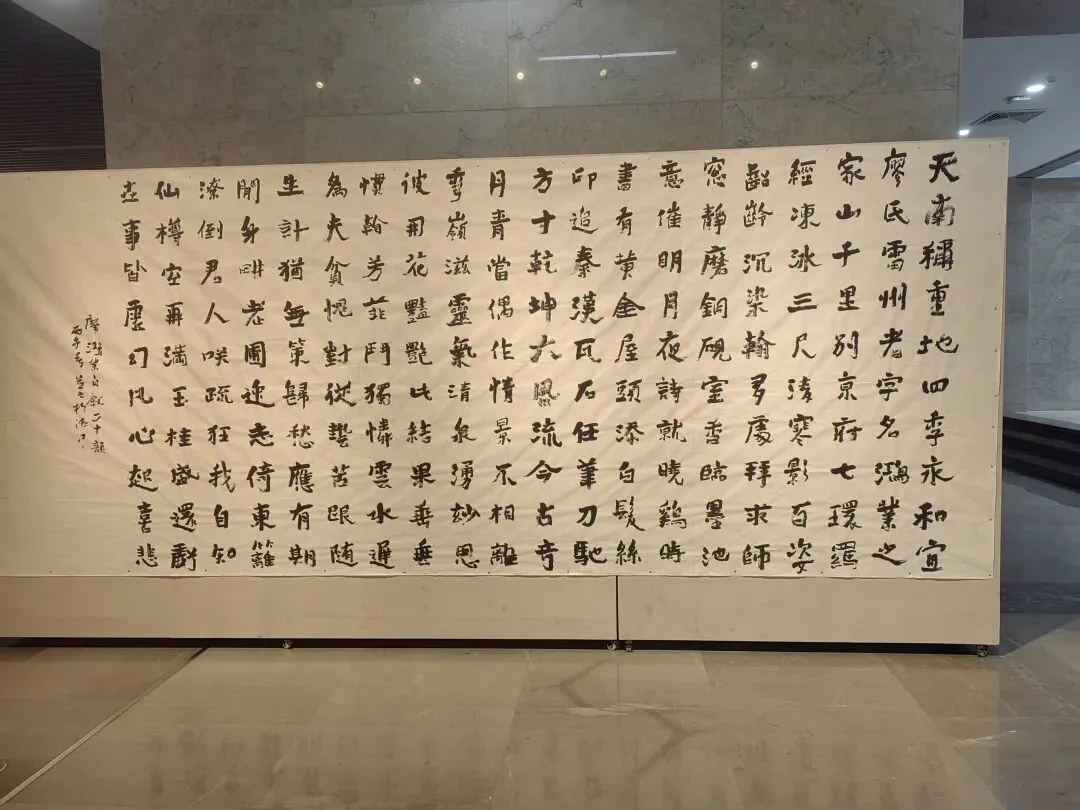 天南穪重地四季永和宜
廖氏雷州者字名鴻業之
家山千里別京府七環羅
經凍冰三尺淩寒影百姿
齠齡沉染翰多處拜求師
窓靜磨銅硯室香臨墨池
意催明月夜詩就曉鷄時
書有黄金屋頭添白髮絲
印追秦漢瓦石任筆刀馳
方寸乾坤大風流今古奇
月青當偶作情景不相離
粵嶺滋靈氣清泉湧妙思
彼開花豔艷此結果垂垂
慣翰芳菲鬥獨憐雲水遲
為夫貧愧對從藝苦跟随
生計猶無策歸愁應有期
閒身畊老圃倚東籬
潦倒君人咲疏狂我自知
仙樽空再滿玉桂盛還虧
世事皆虛幻凡心起喜悲
廖鴻業自叙二十韻
丙午春於